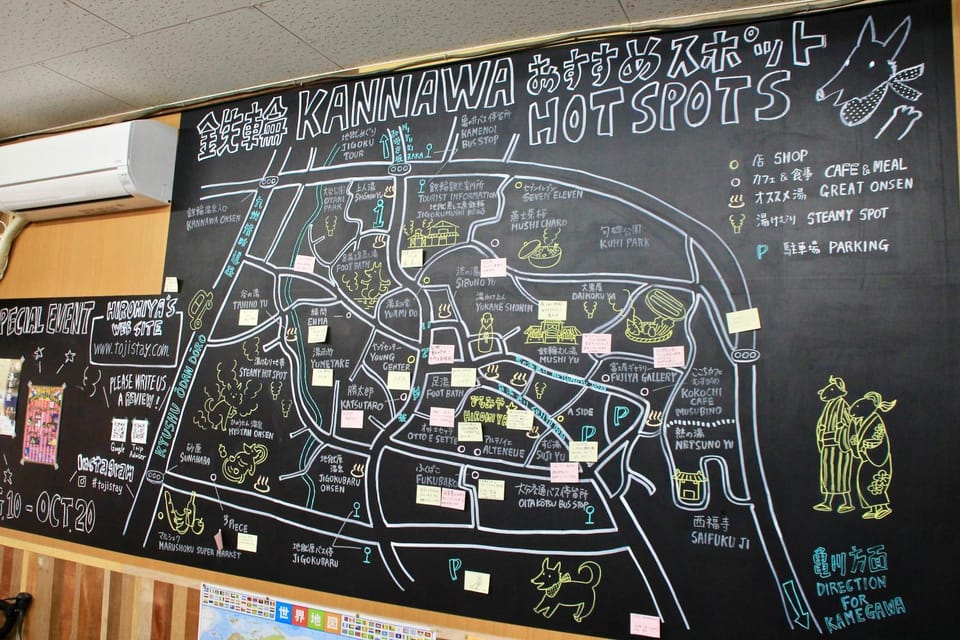 鉄輪 KANNAWA おすすめスポット
HOT SPOTS
店 SHOP
カフェ&食事 CAFE & MEAL
オススメ湯 GREAT ONSEN
湯けむり STEAMY SPOT
P 駐車場 PARKING
地獄めぐり
JIGOKU
TOUR
亀の井バス停留所
KAMENOI
BUS STOP
鉄輪温泉入口
KANNAWA ONSEN
大谷公園
OTANI
PARK
上人湯
鉄輪観光案内所
TOURIST INFORMATION
セブンイレブン
SEVEN ELEVEN
MUSHI CHARO
KUHI PARK
FOOT BATH
渋の湯
SIBUNO YU
谷の湯
TANINO YU
ENMA
YUMI DO
YUKAKE SHONIN
大黒屋
DAIKOKU YA
鉄輪むし湯
MUSHI YU
STEAMY HOTSPOT
YUMETAKE
ヤングセンター
YOUNG
CENTER
富士屋ギャラリー
FUJIYA GALLERY
KOKOCHI
CAFE
MUSUBINO
勝太郎
KATSUTARO
足湯
FOOT BATH
HIROMIYA
A SIDE
P
P
ひょうたん温泉
HYOTAN ONSEN
OTTO E SETTE
アルテノイエ
ALTENEUE
すじ湯
SUJI YU
熱の湯
NETSUNO YU
砂原
SUNAHARA
地獄原
温泉
JIGOKUBARU
ONSEN
ふくばこ
FUKUBAKO
大分交通バス停留所
OITA KOTSU BUS STOP
西福寺
SAIFUKU JI
3 PIECE
マルショク
MARUSHOKU SUPER MARKET
地獄原バス停
JIGOKUBARU
P
KYUSHU ODAN DORO
亀川方面
DIRECTION
FOR
KAMEGAWA
SPECIAL EVENT
HIROMIYA's
WEB SITE
www.tojistay.com
PLEASE WRITE US
A REVIEW!
Google
Instagram
#tojistay
10 - OCT. 20
世界地図